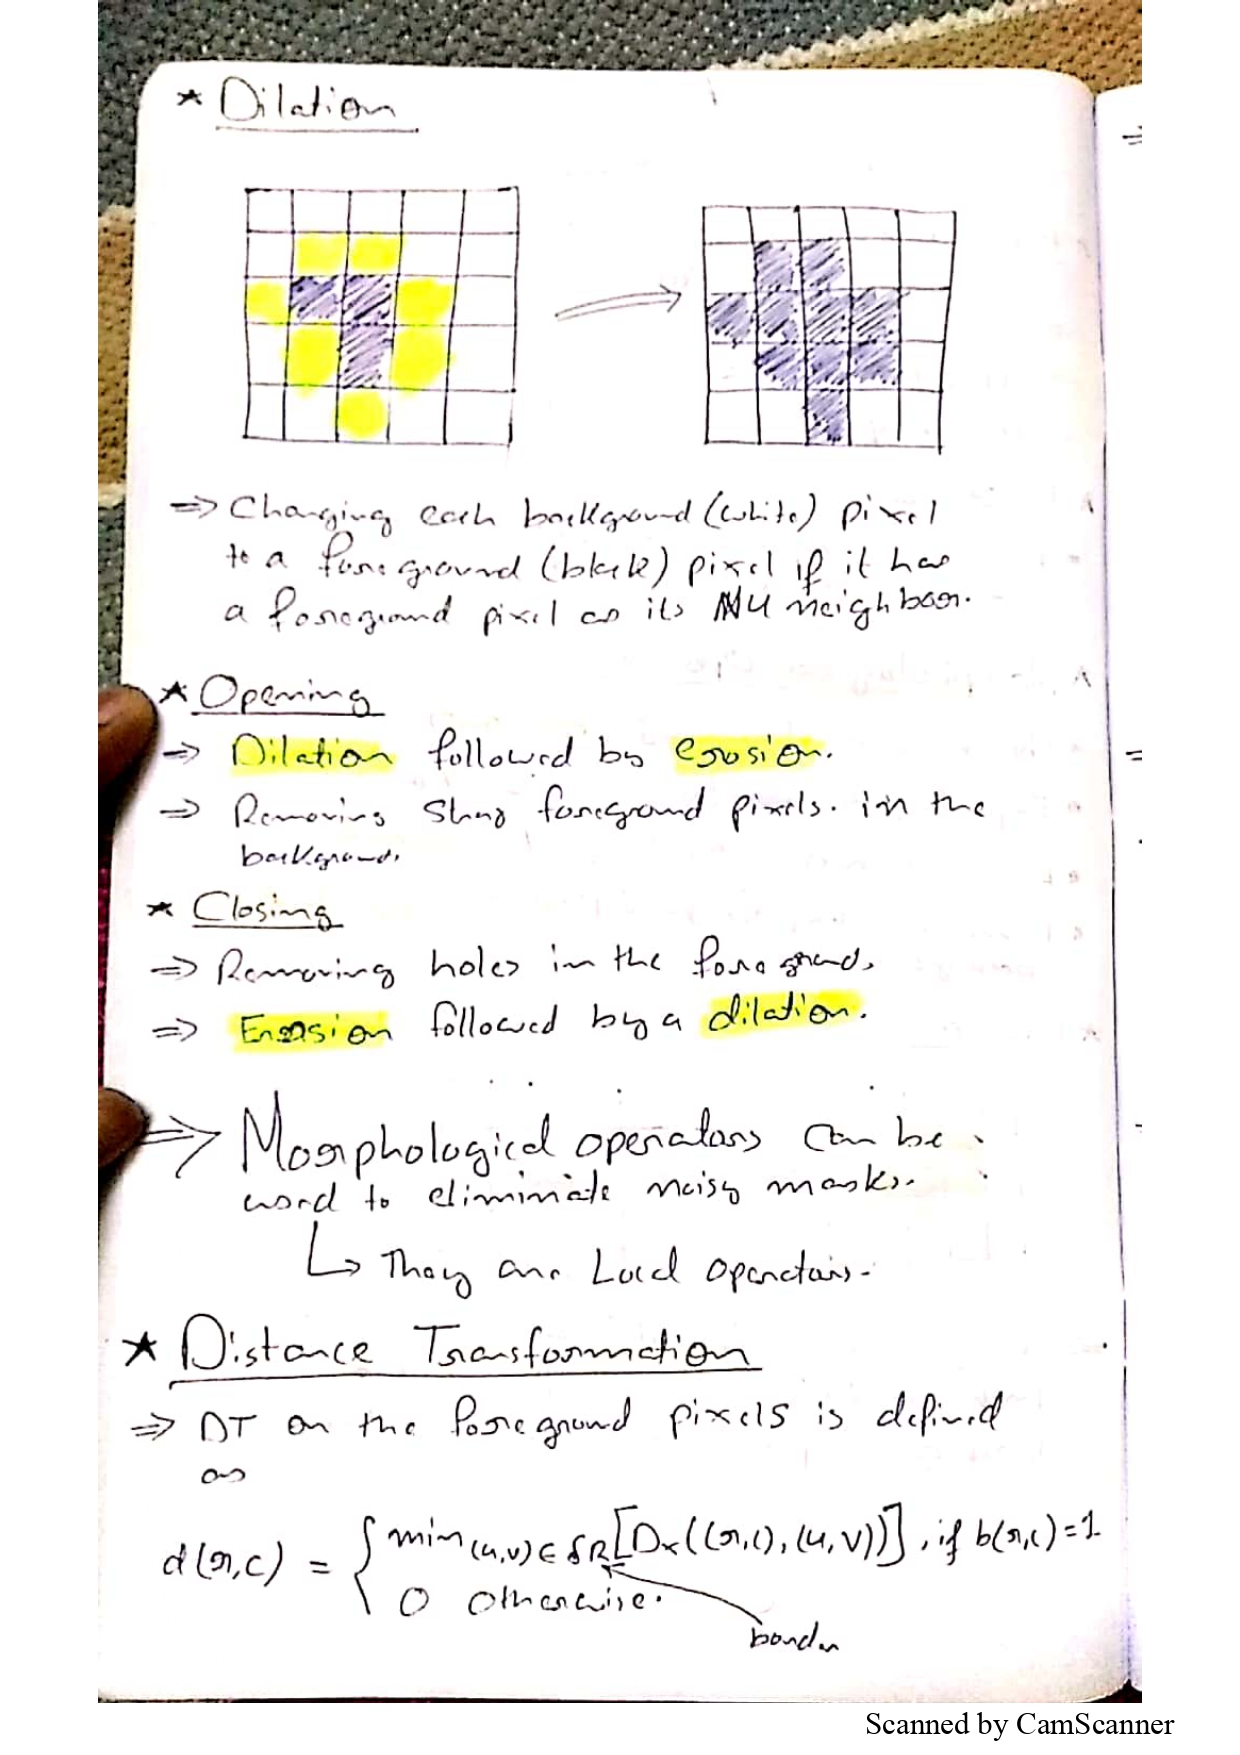 ★ Dilation
⇒ Changing each background (white) pixel
to a foreground (black) pixel if it has
a foreground pixel as its N4 neighbour.
★ Opening
⇒ Dilation followed by erosion.
⇒ Removing stray foreground pixels. in the
background.
★ Closing
⇒ Removing holes in the foreground.
⇒ Erosion followed by a dilation.
⇒ Morphological operators can be
used to eliminate noisy masks.
↳ They are Local operators.
★ Distance Transformation
⇒ DT on the foreground pixels is defined
as
d(r,c) = { min (u,v) ∈ δR [Dx((r,c),(u,v))], if b(r,c)=1
0 otherwise.
border
Scanned by CamScanner